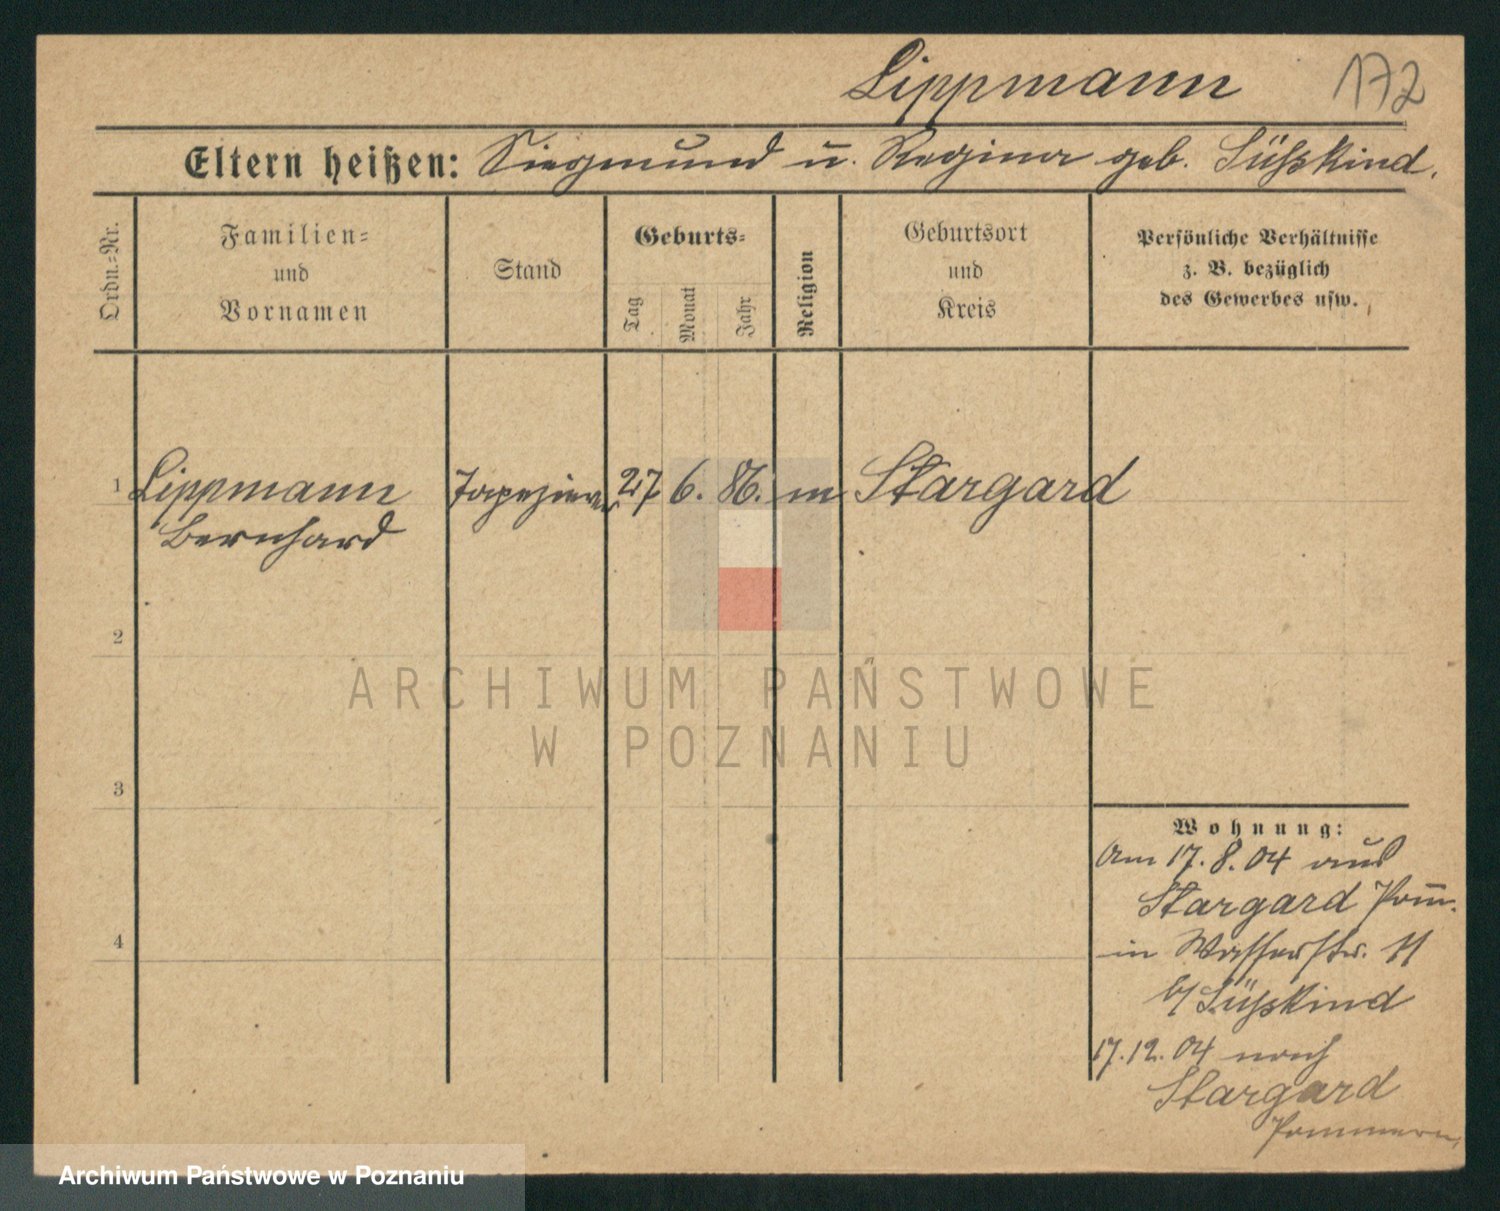 Lippmann 172
Eltern heißen: Siegmund u. Regina geb. Süßkind.
Ordn.-Nr.
Familien-
und
Vornamen
Stand
Geburts-
Tag
Monat
Jahr
Religion
Geburtsort
und
Kreis
Persönliche Verhältnisse
z. B. bezüglich
des Gewerbes usw.
1 Lippmann Tapezierer 27 6. 86. m Stargard
Bernhard
2
3
4
ARCHIWUM PAŃSTWOWE
W POZNANIU
Wohnung:
Am 17. 8. 04 aus
Stargard Pom̅.
in Wasserstr. 11
b/ Süßkind
17. 12. 04 nach
Stargard
Pommern.
Archiwum Państwowe w Poznaniu